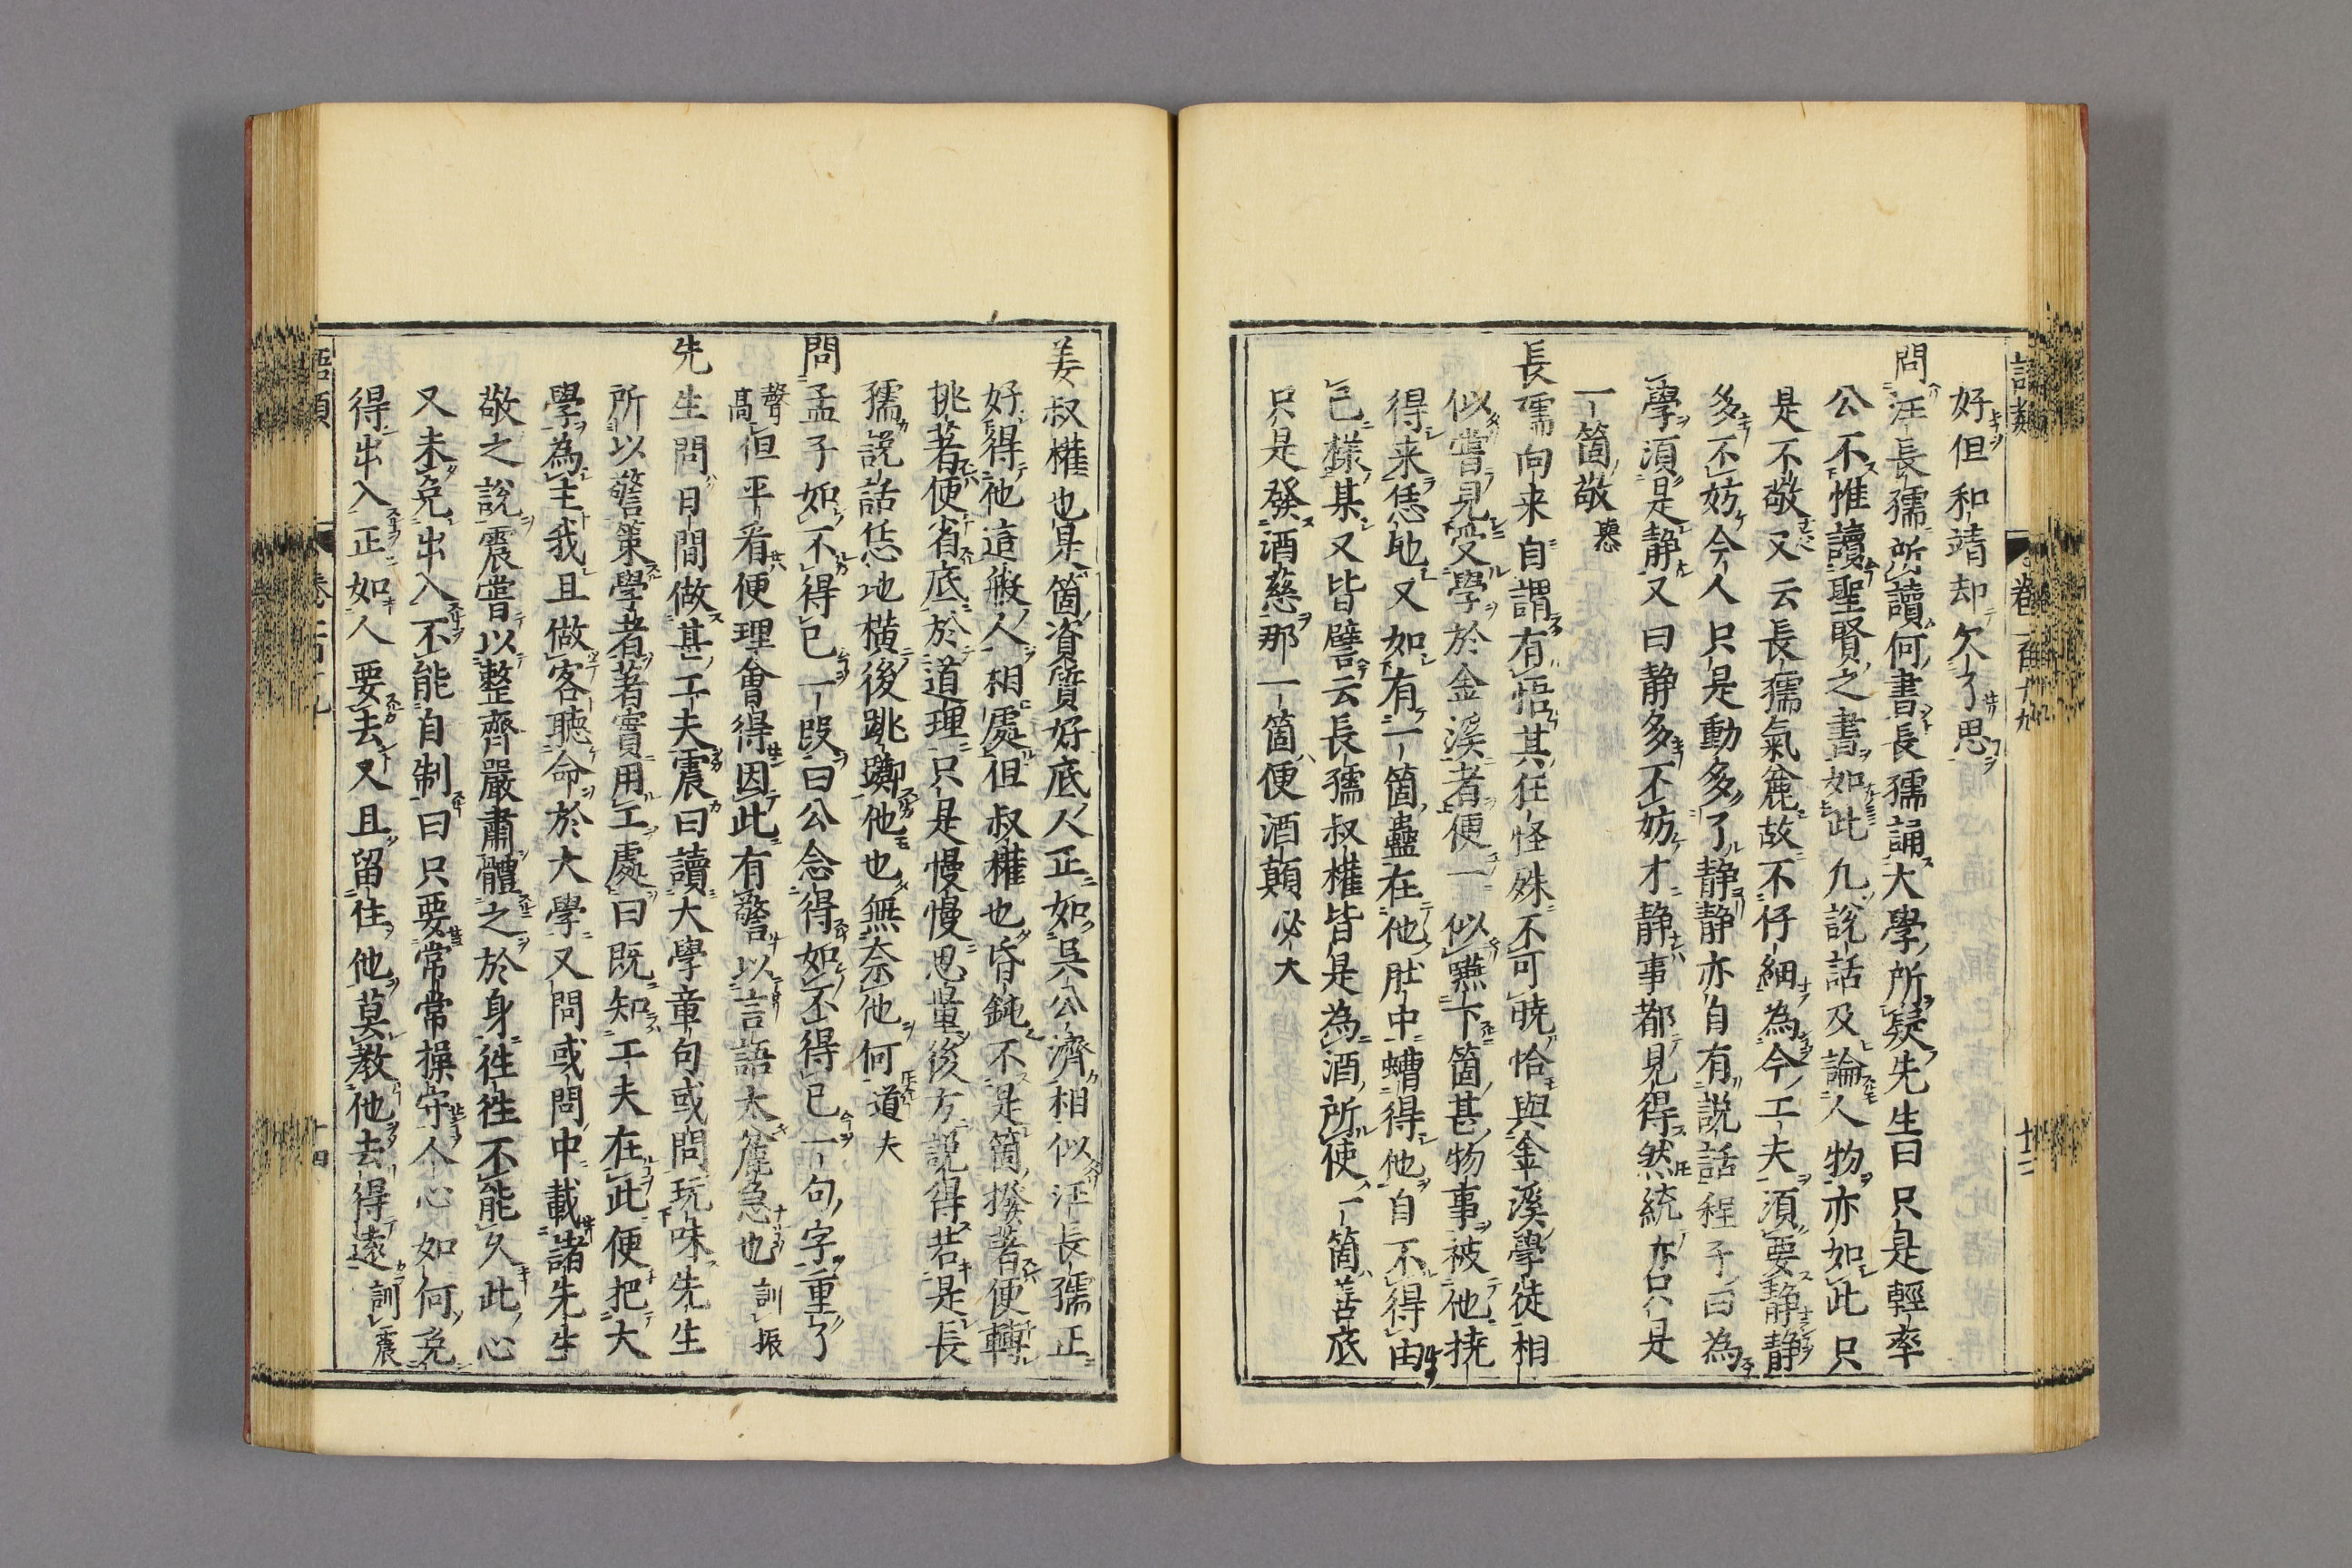 語類
卷一百十九
十三
好但和靖却欠了思
問汪長孺所讀何書長孺誦大學所疑先生曰只是輕率
公不惟讀聖賢之書如此凡說話及論人物亦如此只
是不敬又云長孺氣麄故不仔細為今工夫須要静静
多不妨今人只是動多了静静亦自有説話程子曰為
學須是静又曰静多不妨才静事都見得然統亦只是
一箇敬
長孺向来自謂有悟其狂怪殊不可暁恰與金溪學徒相
似嘗見受學於金溪者便一似嚥下箇甚物事被他撓
得来恁地又如有一箇蠱在他肚中螬得他自不得由
己樣某又皆譬云長孺叔權皆是為酒所使一箇善底
只是發酒慈那一箇便酒顛必大
姜叔權也是箇資質好底人正如吳公濟相似汪長孺正
好得他這般人相處但叔權也昏鈍不是箇撥著便轉
挑著便省底於道理只是慢慢思量後方説得若是長
孺說話恁地橫後跳躑他也無奈他何道夫
問孟子如不得已一段曰公念得如不得已一句字重了
聲高但平看便理會得因此有警以言語太麄急也訓振
先生問日間做甚工夫震曰讀大學章句或問玩味先生
所以警策學者著實用工處曰既知工夫在此便把大
學為主我且做客聽命於大學又問或問中載諸先生
敬之說震嘗以整齊嚴肅體之於身徃徃不能久此心
又未免出入不能自制曰只要常常操守人心如何免
得出入正如人要去又且留住他莫教他去得遠訓震